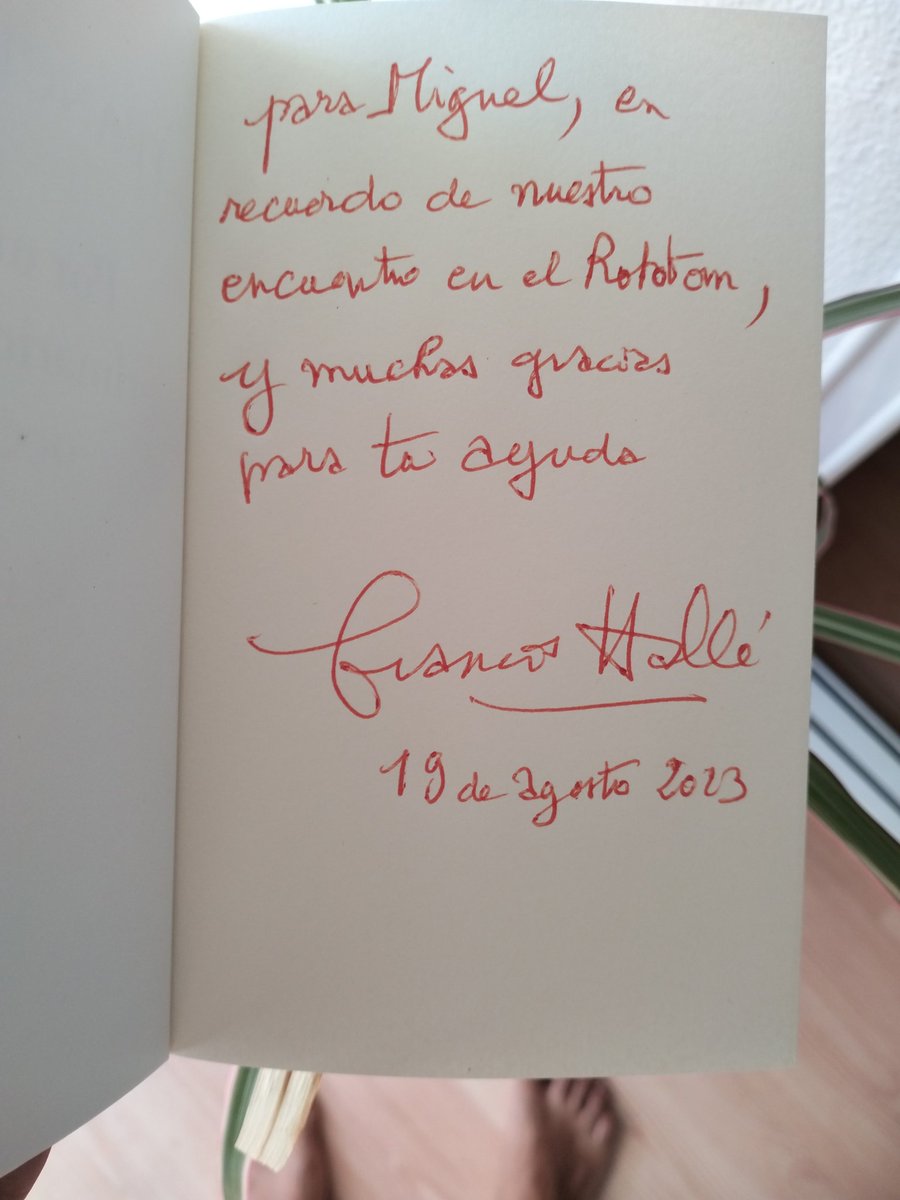 para Miguel, en
recuerdo de nuestro
encuentro en el Rototom,
y muchas gracias
para tu ayuda
Francis Hallé
19 de agosto 2023